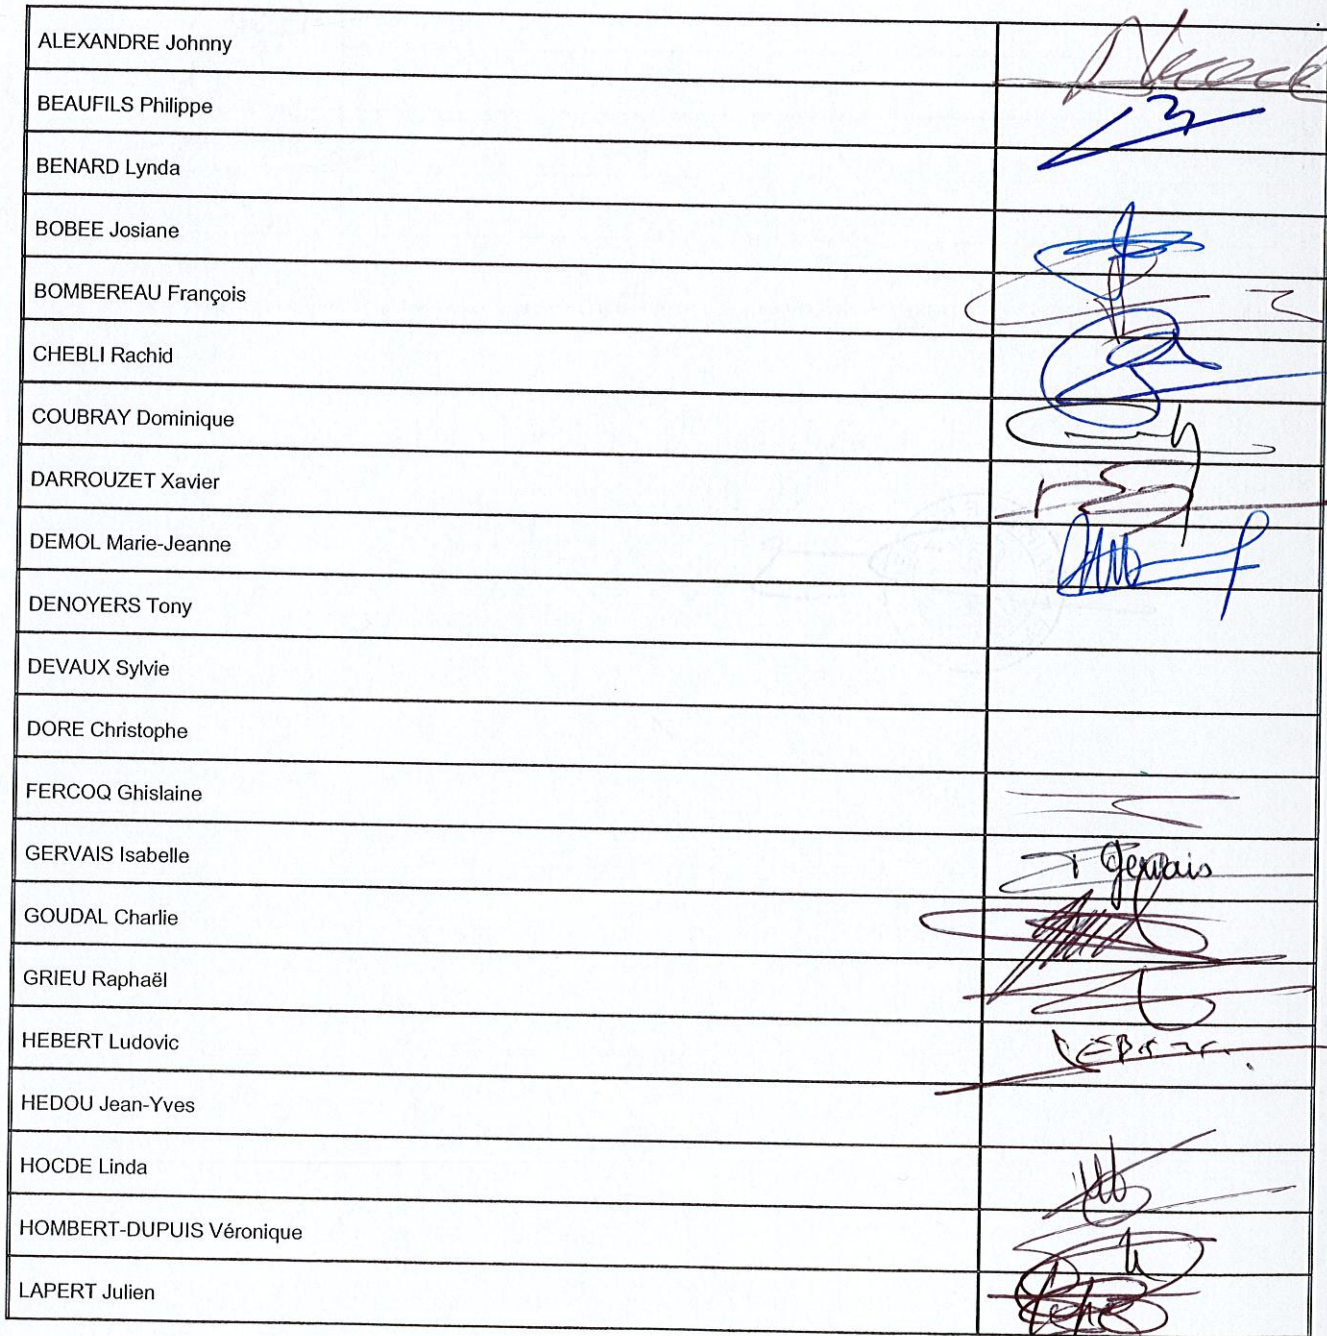 ALEXANDRE Johnny
BEAUFILS Philippe
BENARD Lynda
BOBEE Josiane
BOMBEREAU François
CHEBLI Rachid
COUBRAY Dominique
DARROUZET Xavier
DEMOL Marie-Jeanne
DENOYERS Tony
DEVAUX Sylvie
DORE Christophe
FERCOQ Ghislaine
GERVAIS Isabelle Gervais
GOUDAL Charlie
GRIEU Raphaël
HEBERT Ludovic
HEDOU Jean-Yves
HOCDE Linda
HOMBERT-DUPUIS Véronique
LAPERT Julien